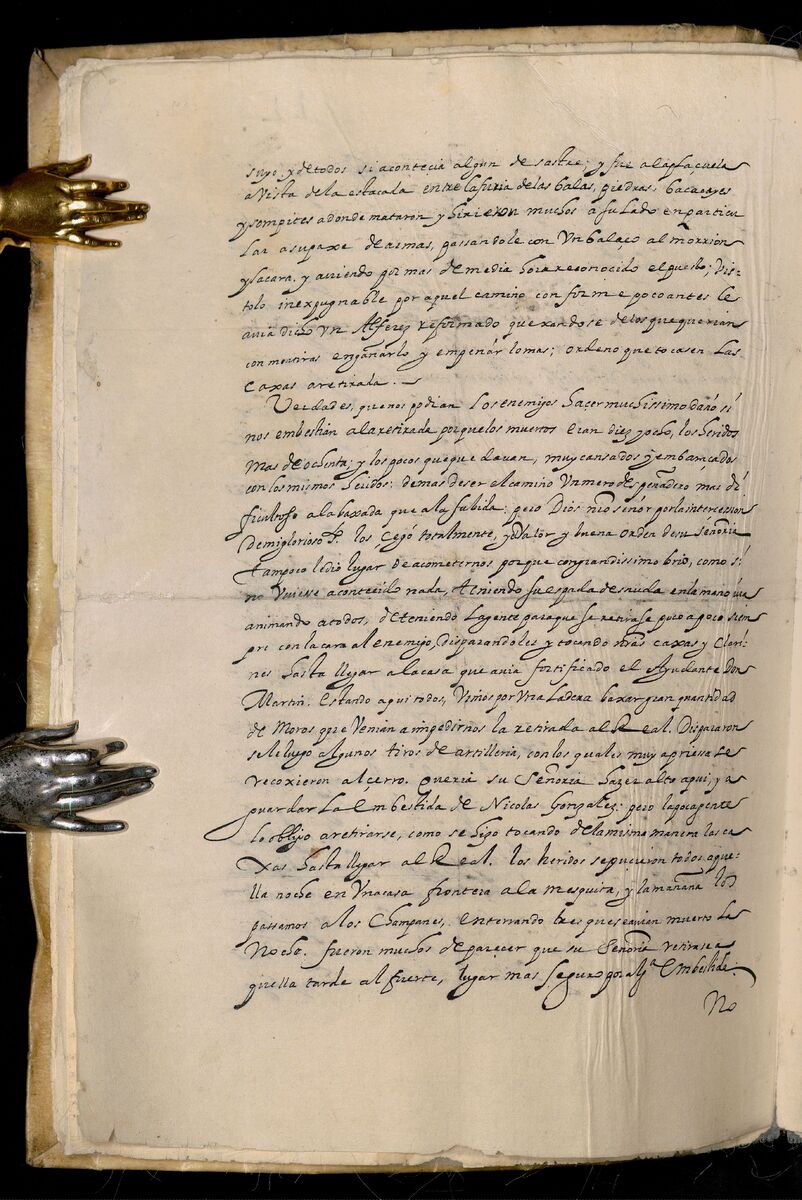 suyo, y de todos si acontecia algun desastre; y fue a la plaçuela
a vista de la estacada entre la furia de las balas, piedras, bacacayes
y sompites a donde mataron y hirieron muchos a su lado en particu
lar a su paxe de armas, passandole con un balaço al morrion
y la cara, y aviendo por mas de media hora reconocido el puesto; vis-
tolo inexpugnable por aquel camino conforme poco antes le
avia dicho un Alferez reformado quexandose de los que querian
con mentiras engañarlo y empeñarlo mas; ordeno que tocasen las
caxas a retirada.
Verdad es, que nos podian los enemigos haçer muchissimo daño si
nos embestian a la retirada porque los muertos eran diez y ocho, los heridos
mas de ochenta; y los pocos que quedavan, muy cansados y embaraçados
con los mismos heridos: demas de ser el camino un mero despeñadero mas di
ficultoso a la baxada que a la subida: pero Dios nro señor por la intercession
de mi glorioso P. los çegó totalmente, y el valor y buena orden de su Señoria
tampoco le dio lugar de acometernos porque con grandissimo brio, como si
no huviesse acontecido nada, teniendo su espada desnuda en la mano iva
animando a todos, deteniendo la gente para que se retirase poco a poco siem
pre con la cara al enemigo, disparandoles y tocando nras caxas y clari-
nes hasta llegar a la casa que avia fortificado el Ayudante Don
Martin. Estando aqui todos, vimos por otra ladera baxar gran quantidad
de Moros que venian a impedirnos la retirada al Real. Dispararon
sele luego algunos tiros de artilleria, con los quales muy apriessa se
recoxieron al çerro. Queria su Señoria hazer alto aqui, y a
guardar la embestida de Nicolas Gonzalez: pero la poca gente
lo obligo a retirarse, como se higo tocando de la misma manera las ca
xas hasta llegar al Real. los heridos se pusieron todos aque-
lla noche en una casa frontera a la mesquita, y la mañana los
passamos a los Champanes, enterrando tres que se avian muerto la
noche. fueron muchos de pareçer que su Señoria retirase a
quella tarde al fuerte, lugar mas seguro por alga embestida.
No